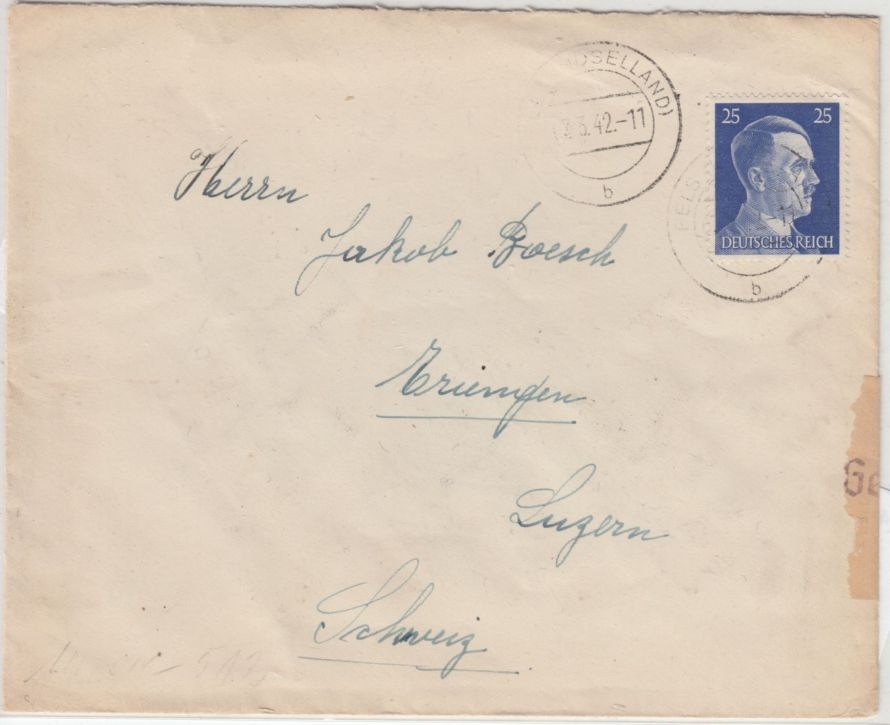 MOSELLAND)
3.42.-11
b
25 25
DEUTSCHES REICH
FELS
b
Herrn
Jakob Boesch
Triengen
Luzern
Ge
Schweiz